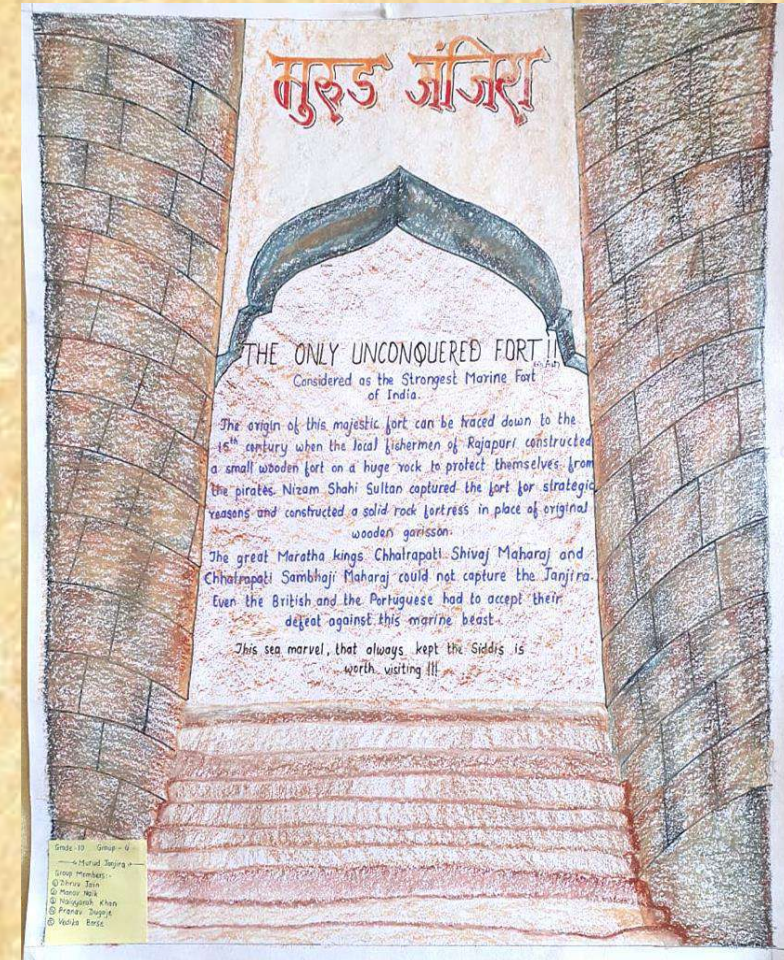 मुरुड जंजिरा
THE ONLY UNCONQUERED FORT !!
Considered as the Strongest Marine Fort
of India.
The origin of this majestic fort can be traced down to the
15th century when the local fishermen of Rajapuri constructed
a small wooden fort on a huge rock to protect themselves from
the pirates. Nizam Shahi Sultan captured the fort for strategic
reasons and constructed a solid rock fortress in place of original
wooden garisson.
The great Maratha kings Chhatrapati Shivaj Maharaj and
Chhatrapati Sambhaji Maharaj could not capture the Janjira.
Even the British and the Portuguese had to accept their
defeat against this marine beast
This sea marvel, that always kept the Siddis is
worth visiting !!!
Grade-10 Group-4
Murud Janjira
Group Members:-
① Dhruv Jain
② Manav Naik
③ Khan
④ Pranav
⑤ Vedika Borse